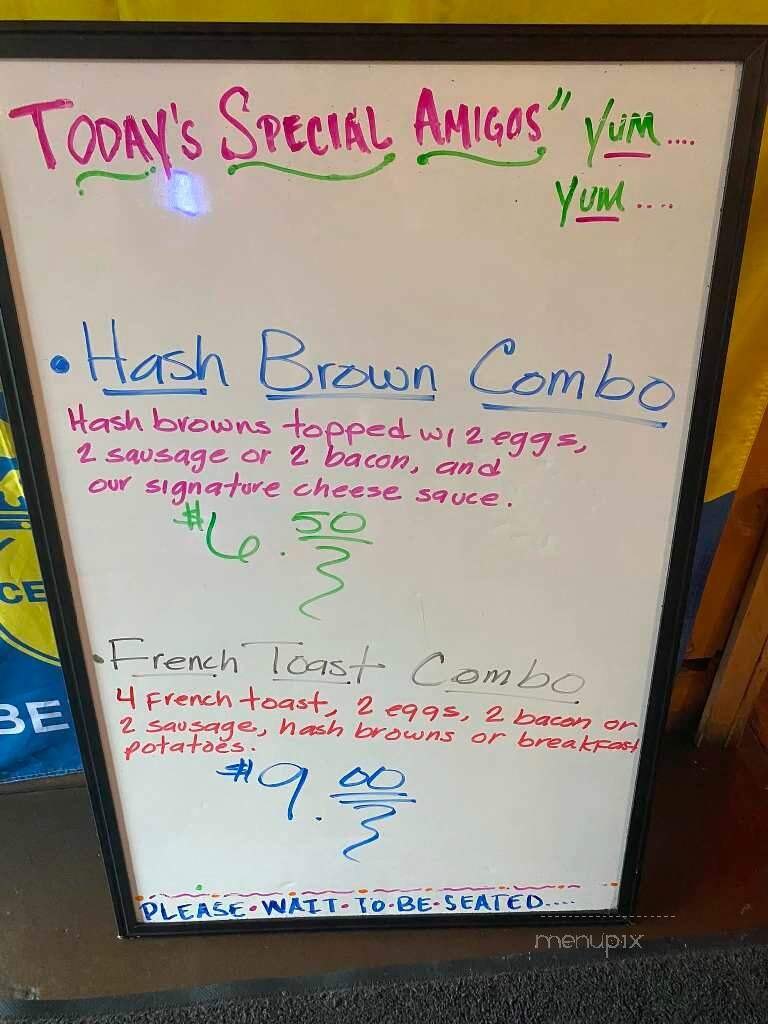 TODAY'S SPECIAL AMIGOS" YUM....
YUM....
• Hash Brown Combo
Hash browns topped w/ 2 eggs,
2 sausage or 2 bacon, and
our signature cheese sauce.
$6.50
• French Toast Combo
4 French toast, 2 eggs, 2 bacon or
2 sausage, hash browns or breakfast
potatoes.
$9.00
PLEASE•WAIT•TO•BE•SEATED....
CE
BE
menupix